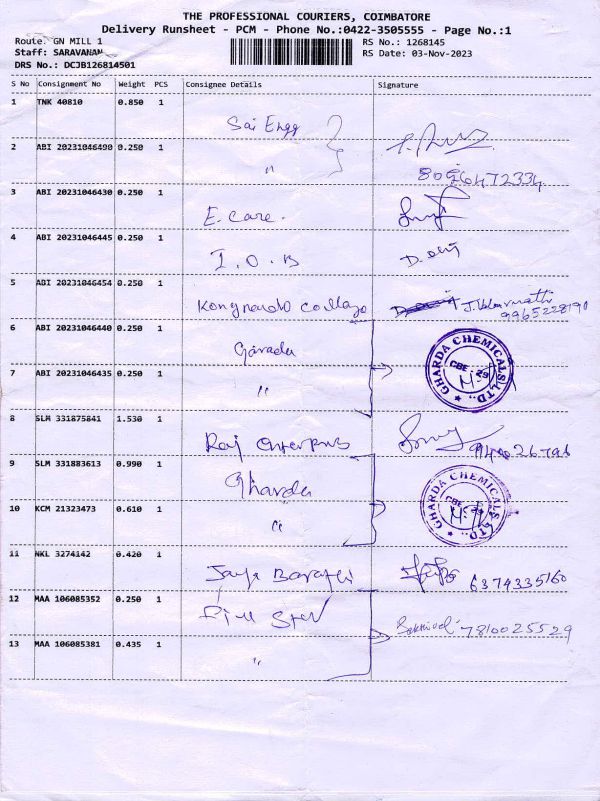 THE PROFESSIONAL COURIERS, COIMBATORE
Delivery Runsheet - PCM - Phone No.:0422-3505555 - Page No.:1
Route. GN MILL 1
Staff: SARAVANAN
DRS No.: DCJB126814501
RS No.: 1268145
RS Date: 03-Nov-2023
S No Consignment No Weight PCS Consignee Details Signature
1 TNK 40810 0.850 1 Sai Engg
2 ABI 20231046490 0.250 1 "
3 ABI 20231046430 0.250 1 E. Care.
4 ABI 20231046445 0.250 1 I. O. B
5 ABI 20231046454 0.250 1 9965228190
6 ABI 20231046440 0.250 1 GHARDA CHEMICALS LTD. CBE - 29
7 ABI 20231046435 0.250 1 "
8 SLM 331875841 1.530 1 Raj
9 SLM 331883613 0.990 1 Gharda GHARDA CHEMICALS LTD. CBE - 29
10 KCM 21323473 0.610 1 "
11 NKL 3274142 0.420 1 Jaya 6374335160
12 MAA 106085352 0.250 1 Sakthivel 7810025529
13 MAA 106085381 0.435 1 "